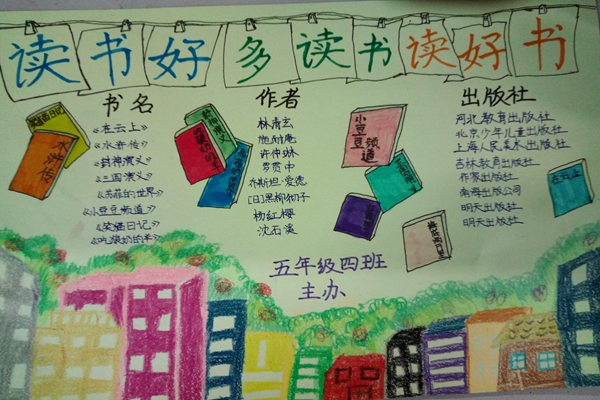 读书好 多读书 读好书
书名 作者 出版社
《在云上》 林清玄 河北教育出版社
《水浒传》 施耐庵 北京少年儿童出版社
《封神演义》 许仲琳 上海人民美术出版社
《三国演义》 罗贯中 吉林教育出版社
《苏菲的世界》 乔斯坦·爱德 作家出版社
《小豆豆频道》 [日]黑柳彻子 南海出版公司
《笑猫日记》 杨红樱 明天出版社
沈石溪 明天出版社
笑猫日记
水浒传
封神演义
小豆豆频道
在云上
五年级四班
主办